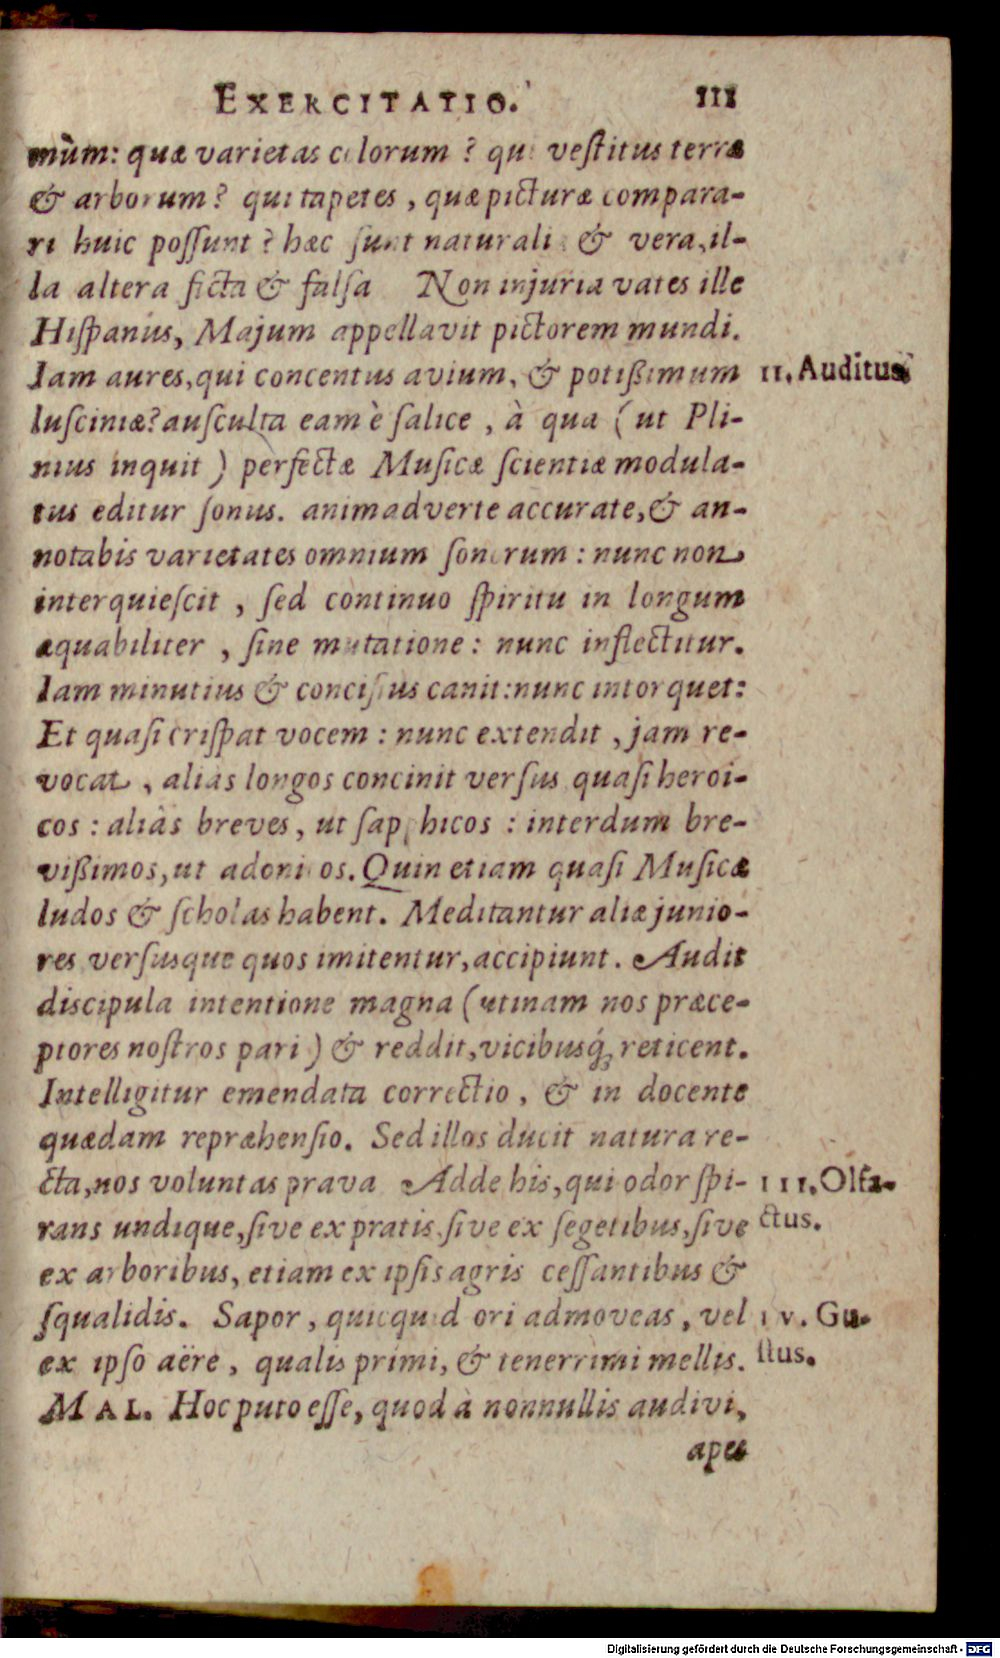 EXERCITATIO. 111
mùm: quæ varietas colorum ? qui veſtitus terræ
& arborum? qui tapetes, quæ picturæ compara-
ri huic poſſunt ? hæc ſunt naturalia & vera, il-
la altera ficta & falſa Non injuria vates ille
Hiſpanus, Majum appellavit pictorem mundi.
Iam aures, qui concentus avium, & potißimum
II. Auditus
luſciniæ? auſculta eam è ſalice, à qua (ut Pli-
nius inquit) perfectæ Muſicæ ſcientiæ modula-
tus editur ſonus. animadverte accurate, & an-
notabis varietates omnium ſonorum : nunc non
interquieſcit, ſed continuo ſpiritu in longum
æquabiliter, ſine mutatione : nunc inflectitur.
Iam minutius & conciſius canit: nunc intorquet:
Et quaſi criſpat vocem : nunc extendit, jam re-
vocat, aliàs longos concinit verſus quaſi heroi-
cos : aliàs breves, ut ſapphicos : interdum bre-
vißimos, ut adonios. Quin etiam quaſi Muſicæ
ludos & ſcholas habent. Meditantur aliæ junio-
res verſusque quos imitentur, accipiunt. Audit
diſcipula intentione magna (utinam nos præce-
ptores noſtros pari) & reddit, vicibusq́; reticent.
Intelligitur emendata correctio, & in docente
quædam repræhenſio. Sed illas ducit natura re-
cta, nos voluntas prava Adde his, qui odor ſpi-
III. Olfa-
rans undique, ſive ex pratis, ſive ex ſegetibus, ſive
ctus.
ex arboribus, etiam ex ipſis agris ceſſantibus &
ſqualidis. Sapor, quicquid ori admoveas, vel
IV. Gu-
ex ipſo aëre, qualis primi, & tenerrimi mellis.
ſtus.
MAL. Hoc puto eſſe, quod à nonnullis audivi,
apes
Digitalisierung gefördert durch die Deutsche Forschungsgemeinschaft - DFG